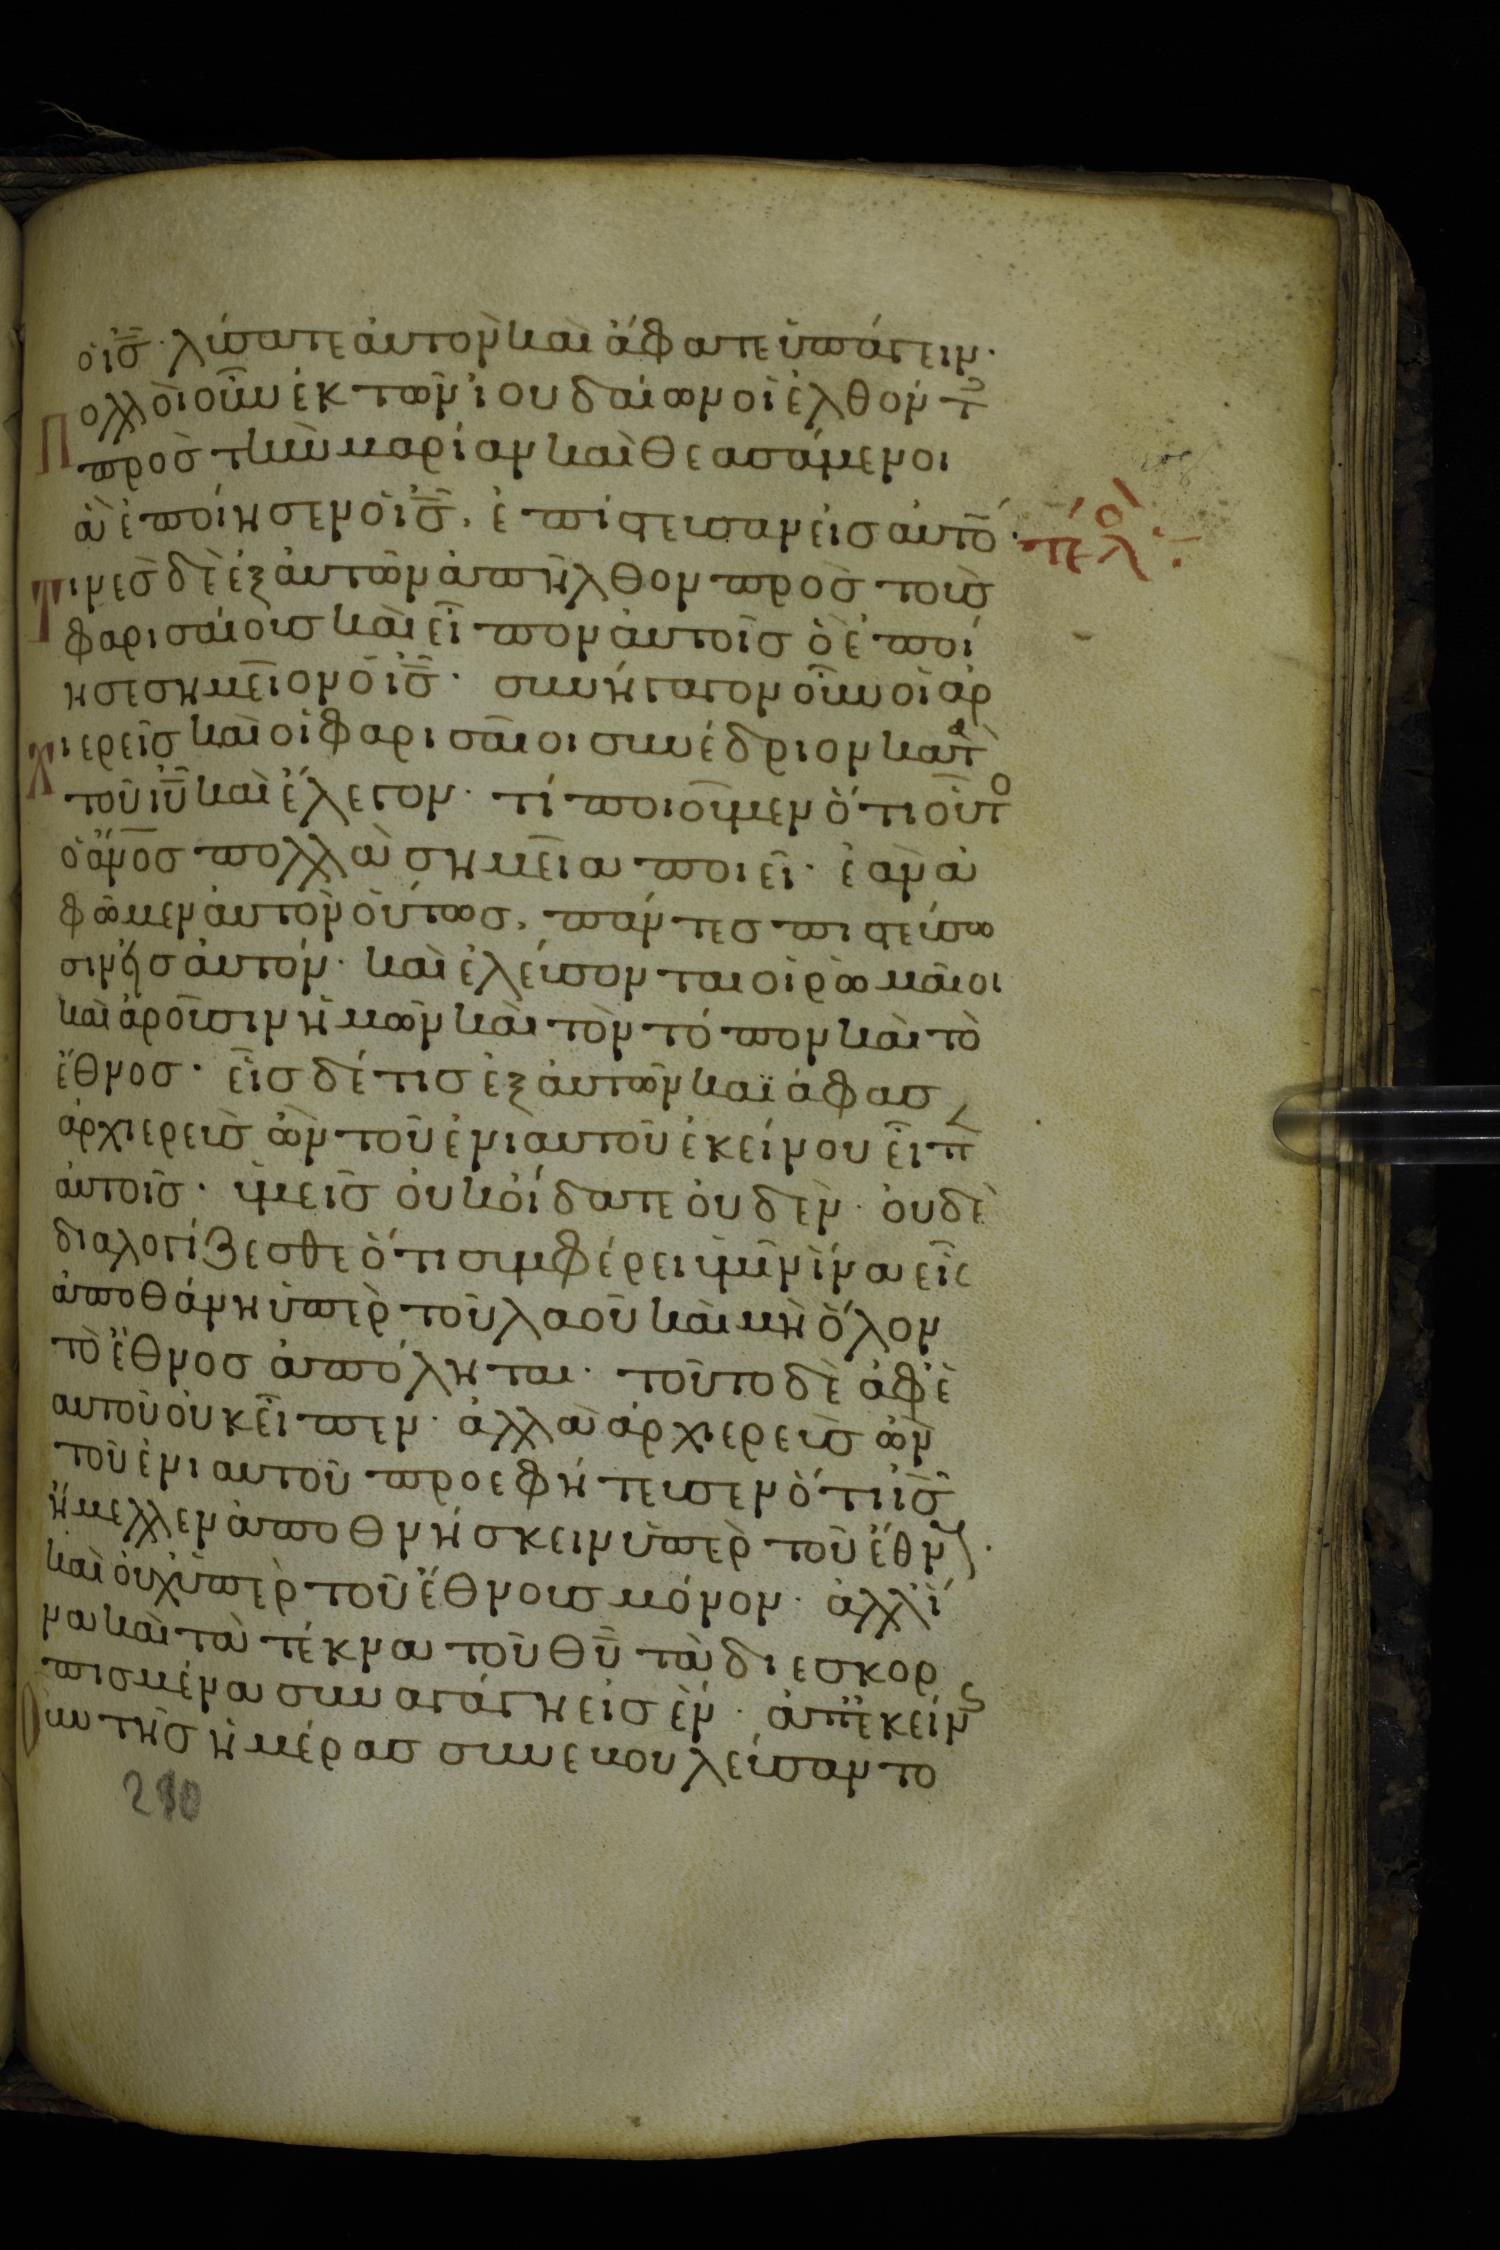 ὁ ισ̅· λύσατε ἀυτὸν καὶ ἄφατε ὑπάγειν·
Πολλοὶ οὖν ἐκ τῶν ἰουδαίων οἱ ἐλθόντ
πρὸσ τὴν μαρίαν καὶ θεασάμενοι
ἃ ἐποίησεν ὁ ισ̅, ἐπίστευσαν εἰσ ἀυτο̅·
τελ
Τινὲσ δὲ ἐξ ἀυτῶν ἀπῆλθον πρὸσ τοὺσ
φαρισαίουσ καὶ εἶπον ἀυτοῖσ ὃ ἐποί
ησε σημεῖον ὁ ισ̅· συνήγαγον οὖν οἱ ἀρ
Χιερεῖσ καὶ οἱ φαρισαῖοι συνέδριον κατὰ
τοῦ ιυ̅ καὶ ἔλεγον· τί ποιοῦμεν ὅτι οὗτο
ὁ ἄνοσ̅ πολλὰ σημεῖα ποιεῖ· ἐὰν ἀ
φῶμεν ἀυτὸν οὕτωσ, πάντεσ πιστεύσω
σιν εἰσ ἀυτόν· καὶ ἐλεύσονται οἱ ρωμαῖοι
καὶ ἀροῦσιν ἡμῶν καὶ τὸν τόπον καὶ τὸ
ἔθνοσ· εἷσ δέ τισ ἐξ ἀυτῶν καϊάφασ
ἀρχιερεὺσ ὢν τοῦ ἐνιαυτοῦ ἐκείνου εἶπ
ἀυτοῖσ· ὑμεῖσ ὀυκ ὀίδατε ὀυδὲν· ὀυδὲ
διαλογίζεσθε ὅτι συμφέρει ὑμῖν ἵνα εἷσ
ἀποθάνη ὑπὲρ τοῦ λαοῦ καὶ μὴ ὅλον
τὸ ἔθνοσ ἀπόληται· τοῦτο δὲ ἀφ ἑ
αυτοῦ ὀυκ εἶπεν· ἀλλὰ ἀρχιερεὺσ ὢν
τοῦ ἐνιαυτοῦ προεφήτευσεν ὅτι ισ̅
ἤμελλεν ἀποθνήσκειν ὑπὲρ τοῦ ἔθν·
καὶ ὀυχ ὑπὲρ τοῦ ἔθνουσ μόνον· ἀλλ ἵ
να καὶ τὰ τέκνα τοῦ θυ̅ τὰ διεσκορ
πισμένα συναγάγη εἰσ ἓν· ἀπ ἐκείνησ
Οὖν τῆσ ἡμέρασ συνεβουλεύσαντο
210